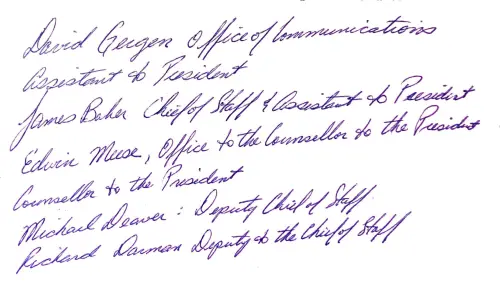 David Gergen Office of Communications
Assistant to President
James Baker Chief of Staff & Assistant to President
Edwin Meese, Office to the Counsellor to the President
Counsellor to the President
Michael Deaver : Deputy Chief of Staff
Richard Darman Deputy to the Chief of Staff